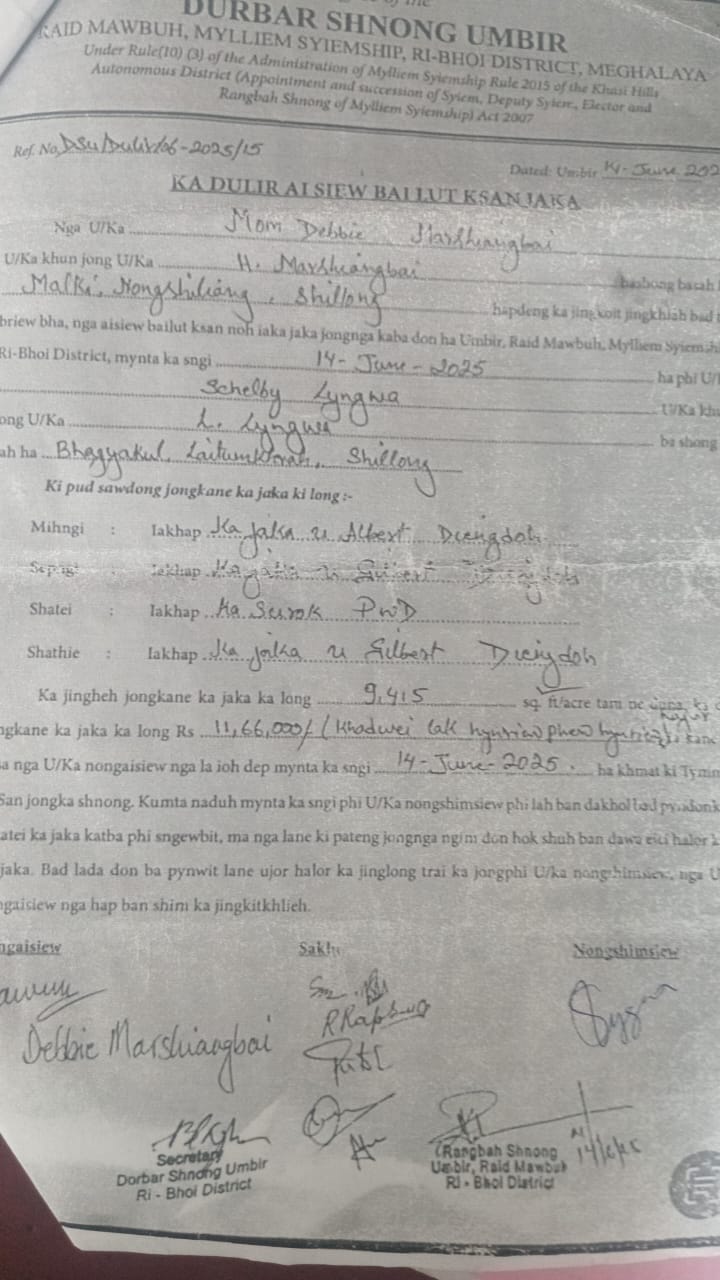 of the
DURBAR SHNONG UMBIR
RAID MAWBUH, MYLLIEM SYIEMSHIP, RI-BHOI DISTRICT, MEGHALAYA
Under Rule(10) (3) of the Administration of Mylliem Syiemship Rule 2015 of the Khasi Hills
Autonomous District (Appointment and succession of Syiem, Deputy Syiem, Elector and
Rangbah Shnong of Mylliem Syiemship) Act 2007
Ref. No. DSU/Dulir/06-2025/15
Dated: Umbir 14-June 202
KA DULIR AI SIEW BALLUT KSAN JAKA
Nga U/Ka Mom Debbie Marshiangbai
U/Ka khun jong U/Ka H. Marshiangbai bashong basah
Malki, Nongshiliang, Shillong hapdeng ka jingkoit jingkhiah bad
briew bha, nga aisiew bailut ksan noh iaka jaka jongnga kaba don ha Umbir, Raid Mawbuh, Mylliem Syiemshi
Ri-Bhoi District, mynta ka sngi 14-June-2025 ha phi U/
Schelby Lyngwa U/Ka khu
ong U/Ka L. Lyngwa ba shong
ah ha Bhagyakul, Laitumkhrah, Shillong
Ki pud sawdong jongkane ka jaka ki long :-
Mihngi : Iakhap Ka jaka u Albert Diengdoh
Sepngi : Iakhap Ka jaka u Gilbert Diengdoh
Shatei : Iakhap Ka Surok PWD
Shathie : Iakhap Ka jaka u Gilbert Diengdoh
Ka jingheh jongkane ka jaka ka long 9,415 sq. ft/acre tam ne duna, ka
ngkane ka jaka ka long Rs 11,66,000/- (Khadwei lak hynriew phew hynriew
sa nga U/Ka nongaisiew nga la ioh dep mynta ka sngi 14-June-2025. ha khmat ki Tymm
San jongka shnong. Kumta naduh mynta ka sngi phi U/Ka nongshimsiew phi lah ban dakhol bad pyndonk
atei ka jaka katba phi sngewbit, ma nga lane ki pateng jongnga ngim don hok shuh ban dawa eiei halor
jaka. Bad lada don ba pynwit lane ujor halor ka jinglong trai ka jongphi U/ka nongshimsiew, nga U
ngaisiew nga hap ban shim ka jingkitkhlieh.
ngaisiew Sakhi Nongshimsiew
Debbie Marshiangbai
Secretary
Dorbar Shnong Umbir
Ri - Bhoi District
(Rangbah Shnong
Umbir, Raid Mawbuh
Ri - Bhoi District